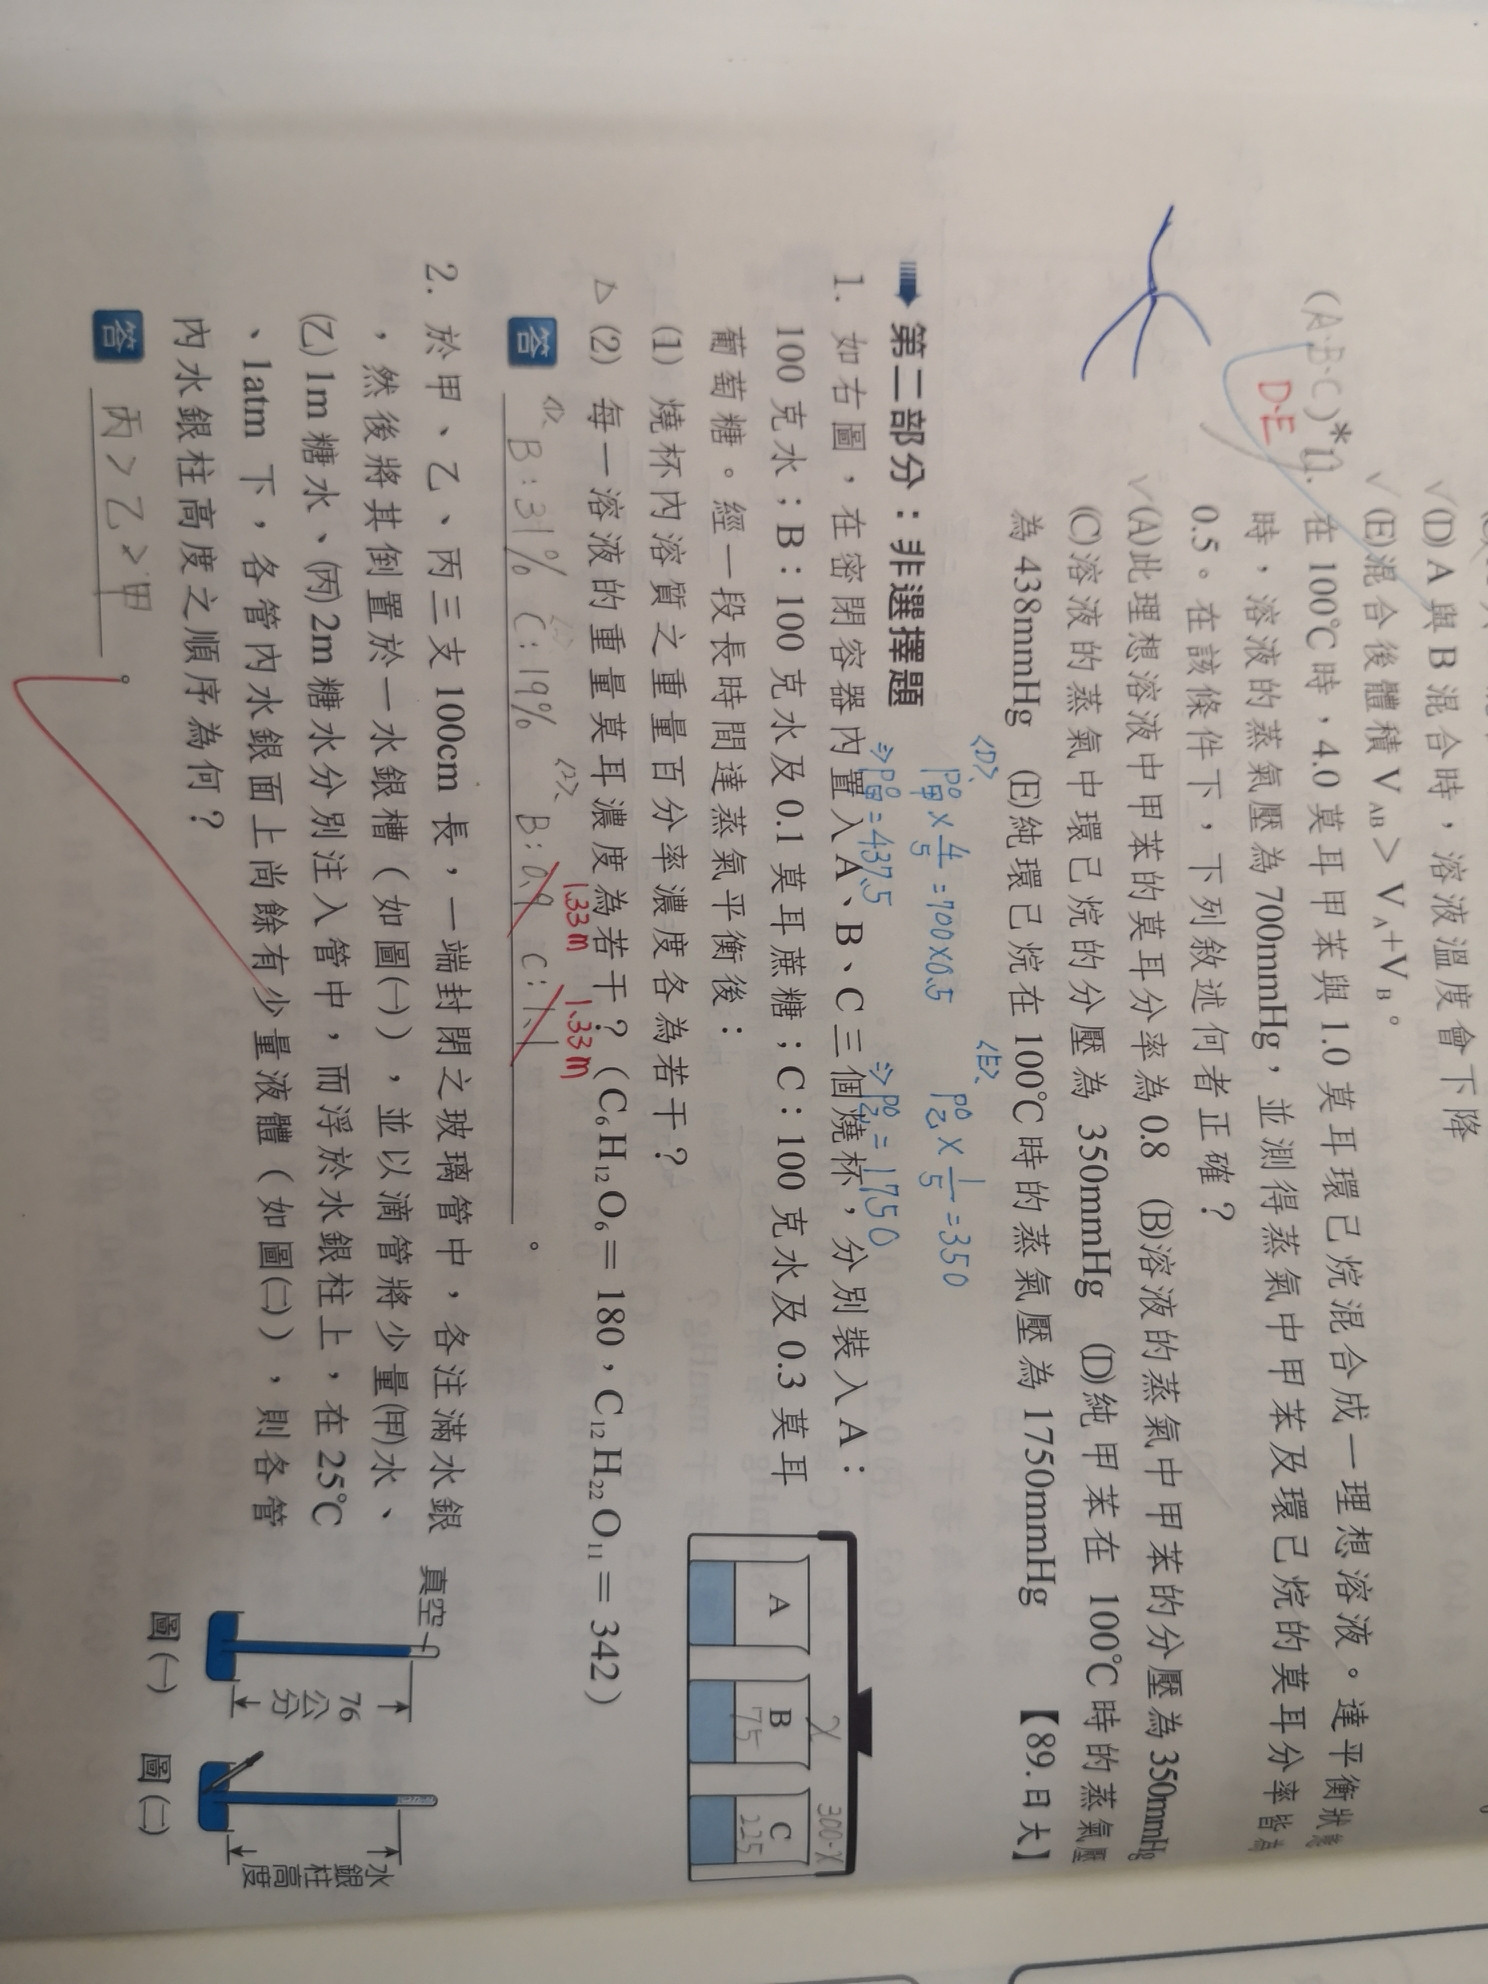 (D) A 與 B 混合時，溶液溫度會下降
(E)混合後體積 V AB > V A + V B 。
(A.B.C)*11. 在 100℃時，4.0 莫耳甲苯與 1.0 莫耳環已烷混合成一理想溶液。達平衡狀態
D.E
時，溶液的蒸氣壓為 700mmHg，並測得蒸氣中甲苯及環已烷的莫耳分率皆為
0.5。在該條件下，下列敘述何者正確？
(A)此理想溶液中甲苯的莫耳分率為 0.8 (B)溶液的蒸氣中甲苯的分壓為 350mmHg
(C)溶液的蒸氣中環已烷的分壓為 350mmHg (D)純甲苯在 100℃時的蒸氣壓
為 438mmHg (E)純環已烷在 100℃時的蒸氣壓為 1750mmHg 【89.日大】
<D> P°甲 × 4/5 = 700×0.5
⇒ P°甲 = 437.5
<E> P°乙 × 1/5 = 350
⇒ P°乙 = 1750
第二部分：非選擇題
1. 如右圖，在密閉容器內置入A、B、C三個燒杯，分別裝入A：
100 克水；B：100 克水及 0.1 莫耳蔗糖；C：100 克水及 0.3 莫耳
葡萄糖。經一段長時間達蒸氣平衡後：
(1) 燒杯內溶質之重量百分率濃度各為若干？
△ (2) 每一溶液的重量莫耳濃度為若干？(C6H12O6＝180，C12H22O11＝342)
答 <1> B：31% C：19% <2> B：0.9 C：1.1 。
1.33m 1.33m
x 300-x
A B C
75 225
2. 於甲、乙、丙三支 100cm 長，一端封閉之玻璃管中，各注滿水銀
，然後將其倒置於一水銀槽（如圖(一)），並以滴管將少量(甲)水、
(乙) 1m 糖水、(丙) 2m 糖水分別注入管中，而浮於水銀柱上，在 25℃
、1atm 下，各管內水銀面上尚餘有少量液體（如圖(二)），則各管
內水銀柱高度之順序為何？
答 丙>乙>甲 。
真空
76公分
圖(一)
水銀柱高度
圖(二)